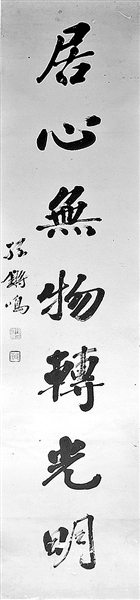 居心無物轉光明
孫鏘鳴